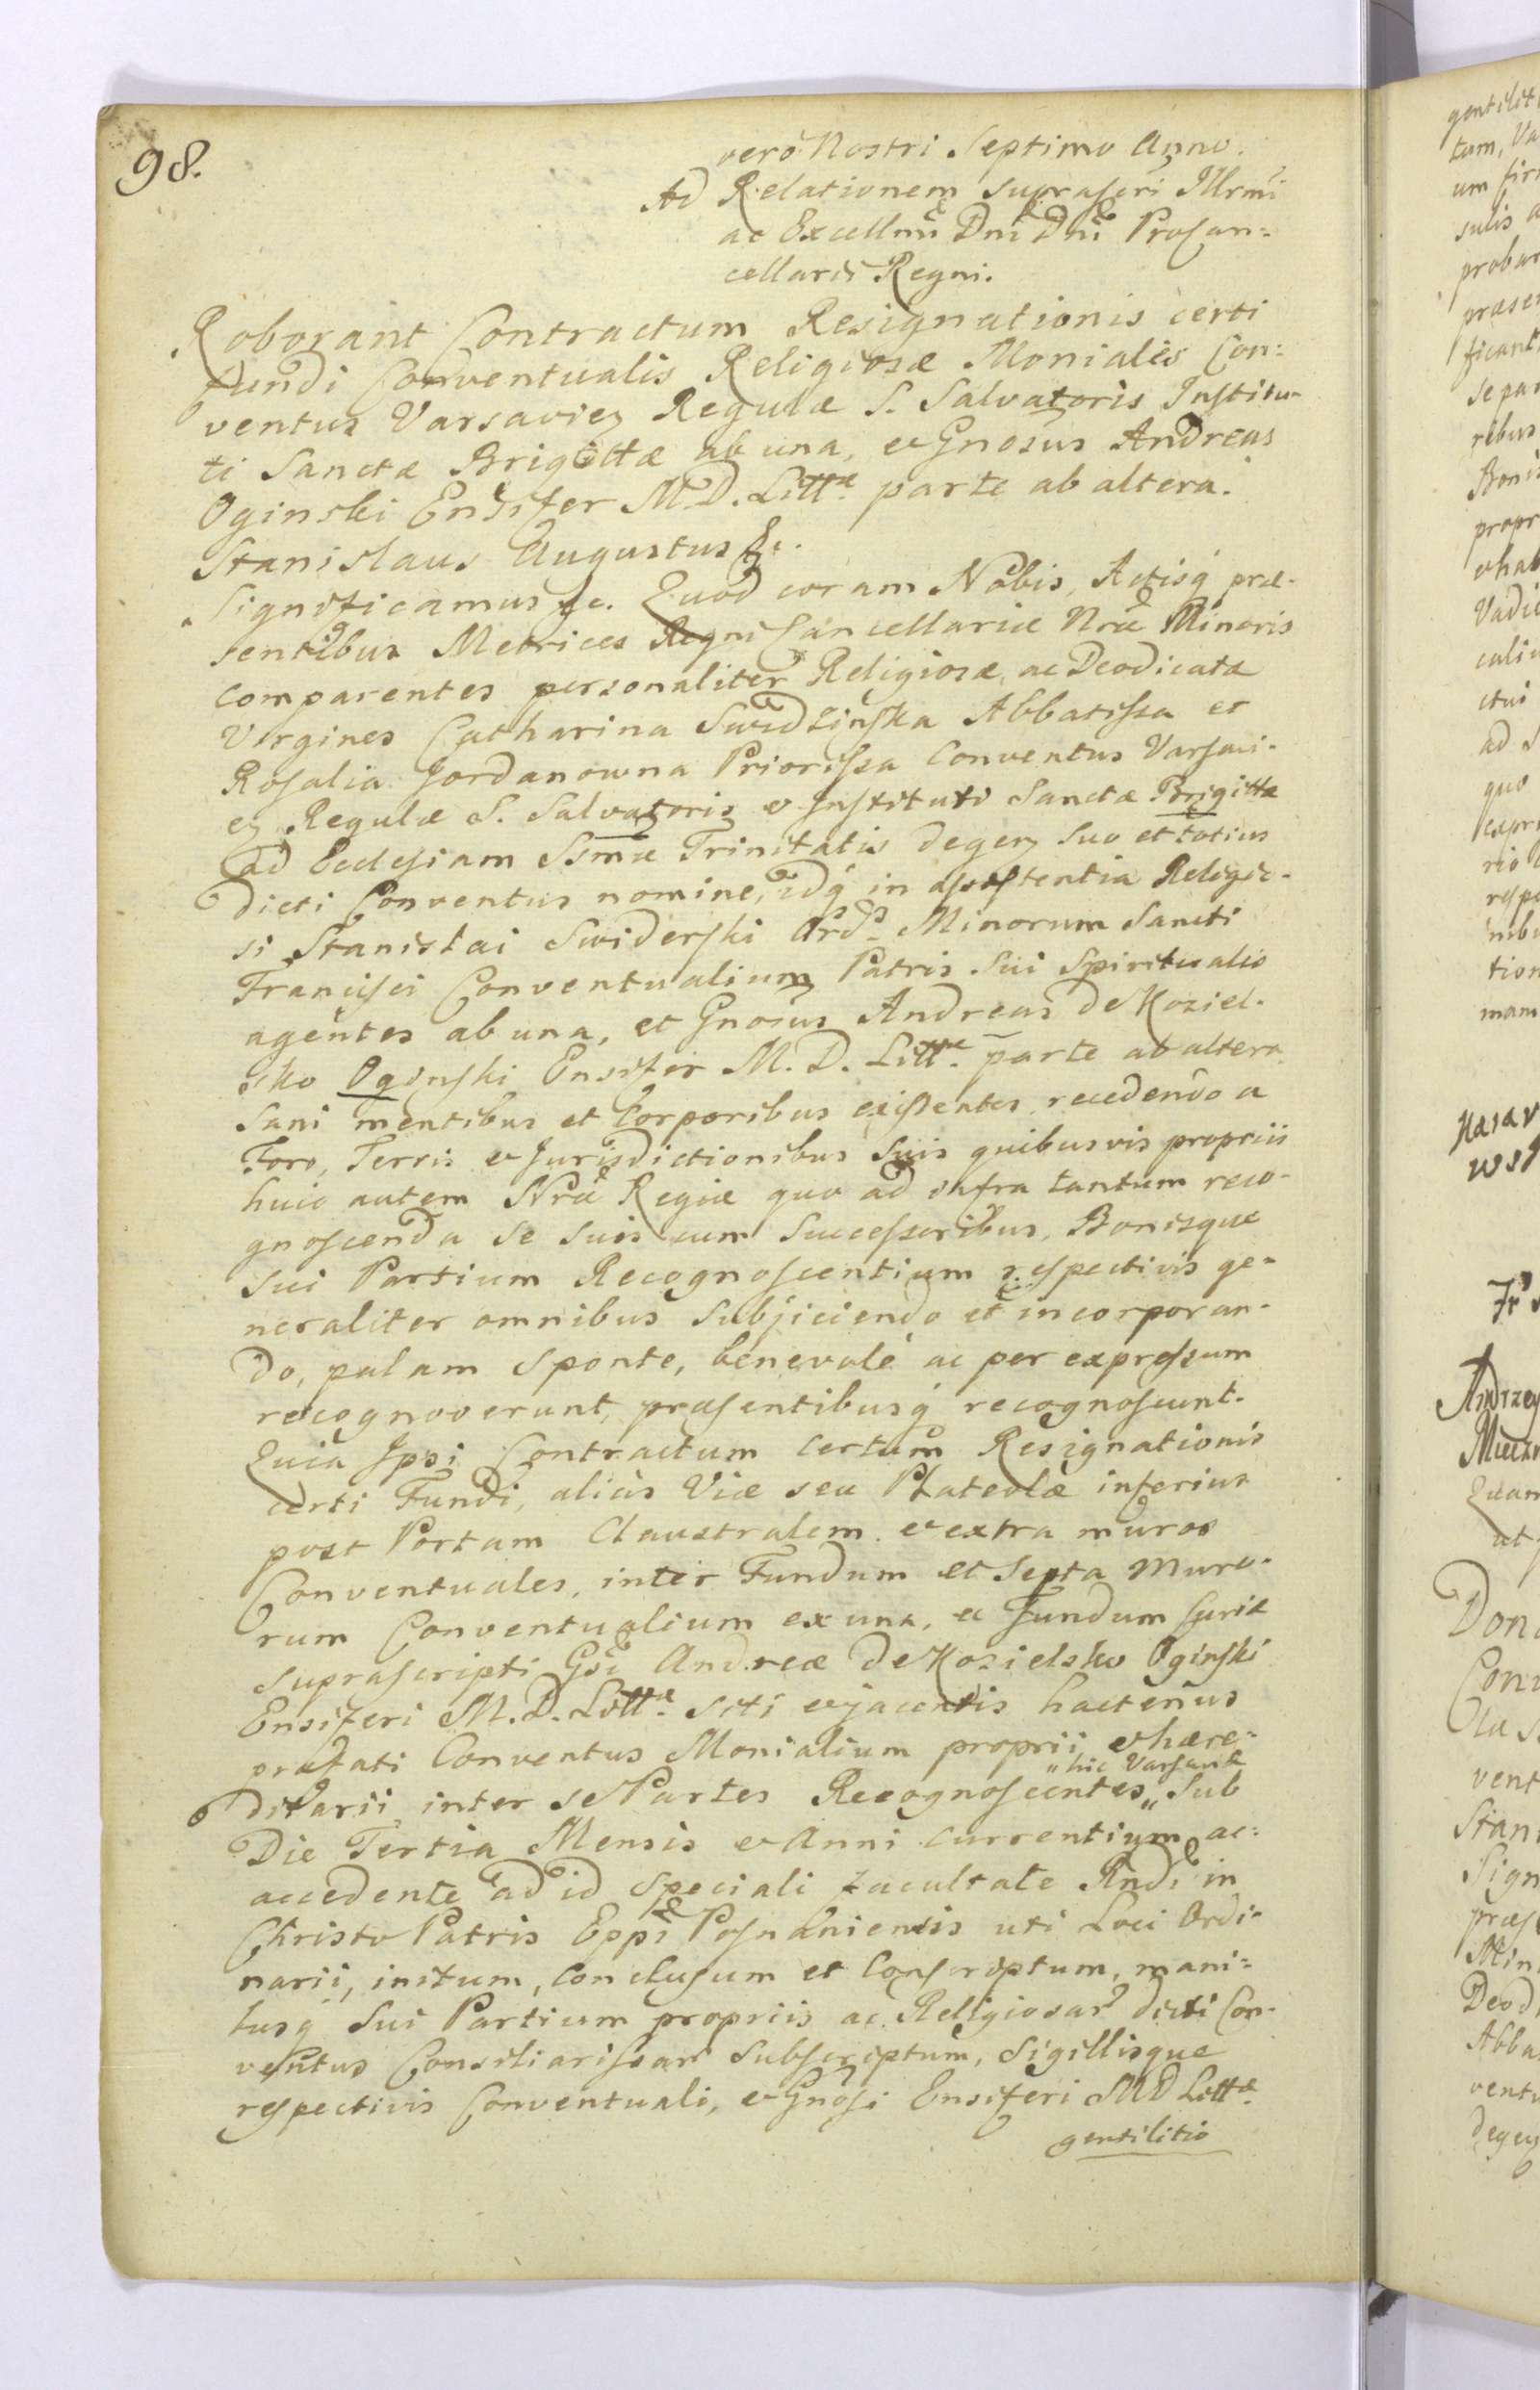 98.
vero Nostri Septimo Anno.
Ad Relationem suprascri Illrmi
ac Excellmi Dni Dni Procan=
cellarii Regni.
Roborant Contractum Resignationis certi
fundi Conventualis Religiosæ Moniales Con=
ventus Varsavien Regulæ S. Salvatoris Institu-
ti Sanctæ Brigittæ ab una, et Gnosus Andreas
Oginski Ensifer M.D. Littæ parte ab altera.
Stanislaus Augustus &c.
Significamus &c. Quod coram Nobis, Actisq præ-
sentibus Metrices Regni Cancellariæ Nræ Minoris
comparentes personaliter Religiosæ, ac Deodicatæ
Virgines Catharina Swidzinska Abbatissa et
Rosalia Jordanowna Priorissa Conventus Varsavi-
en Regulæ S. Salvatoris et Instituti Sanctæ Brigittæ
ad Ecclesiam Ssmæ Trinitatis degen suo et totius
dicti Conventus nomine, idq in assistentia Religio-
si Stanislai Swiderski Ord. Minorum Sancti
Francisci Conventualium Patris sui Spiritualis
agentes ab una, et Gnosus Andreas de Koziel-
sko Oginski Ensifer M. D. Littæ parte ab altera
Sani mentibus et Corporibus existentes, recedendo a
Foro, Terris et Jurisdictionibus suis quibusvis propriis
huic autem Nræ Regiæ quo ad infra tantum reco-
gnoscenda se suis cum Successoribus, Bonisque
sui Partium Recognoscentium respectivis ge-
neraliter omnibus subjiciendo et incorporan-
do, palam sponte, benevole ac per expressum
recognoverunt, præsentibusq recognoscunt.
Quia Ipsi Contractum certum Resignationis
certi Fundi, alias Viæ seu Plateolæ inferius
post Portam Claustralem et extra muros
Conventuales, inter Fundum et Septa Muro-
rum Conventualium ex una, et Fundum Juris
suprascripti Gsi Andreæ de Kozielsko Oginski
Ensiferi M.D. Littæ siti et jacentis hactenus
præfati Conventus Monialium proprii et hære-
ditarii inter se Partes Recognoscentes „hic Varsaviæ„ sub
Die Tertia Mensis et Anni currentium ac-
accedente ad id speciali facultate Rndi in
Christo Patris Eppi Posnaniensis uti Loci Ordi-
narii, initum, conclusum et conscriptum, mani-
busq sui Partium propriis ac Religiosar dicti Con-
ventus Consiliarissar subscriptum, Sigillisque
respectivis Conventuali, et Gnosi Ensiferi MD Littæ
gentilitio